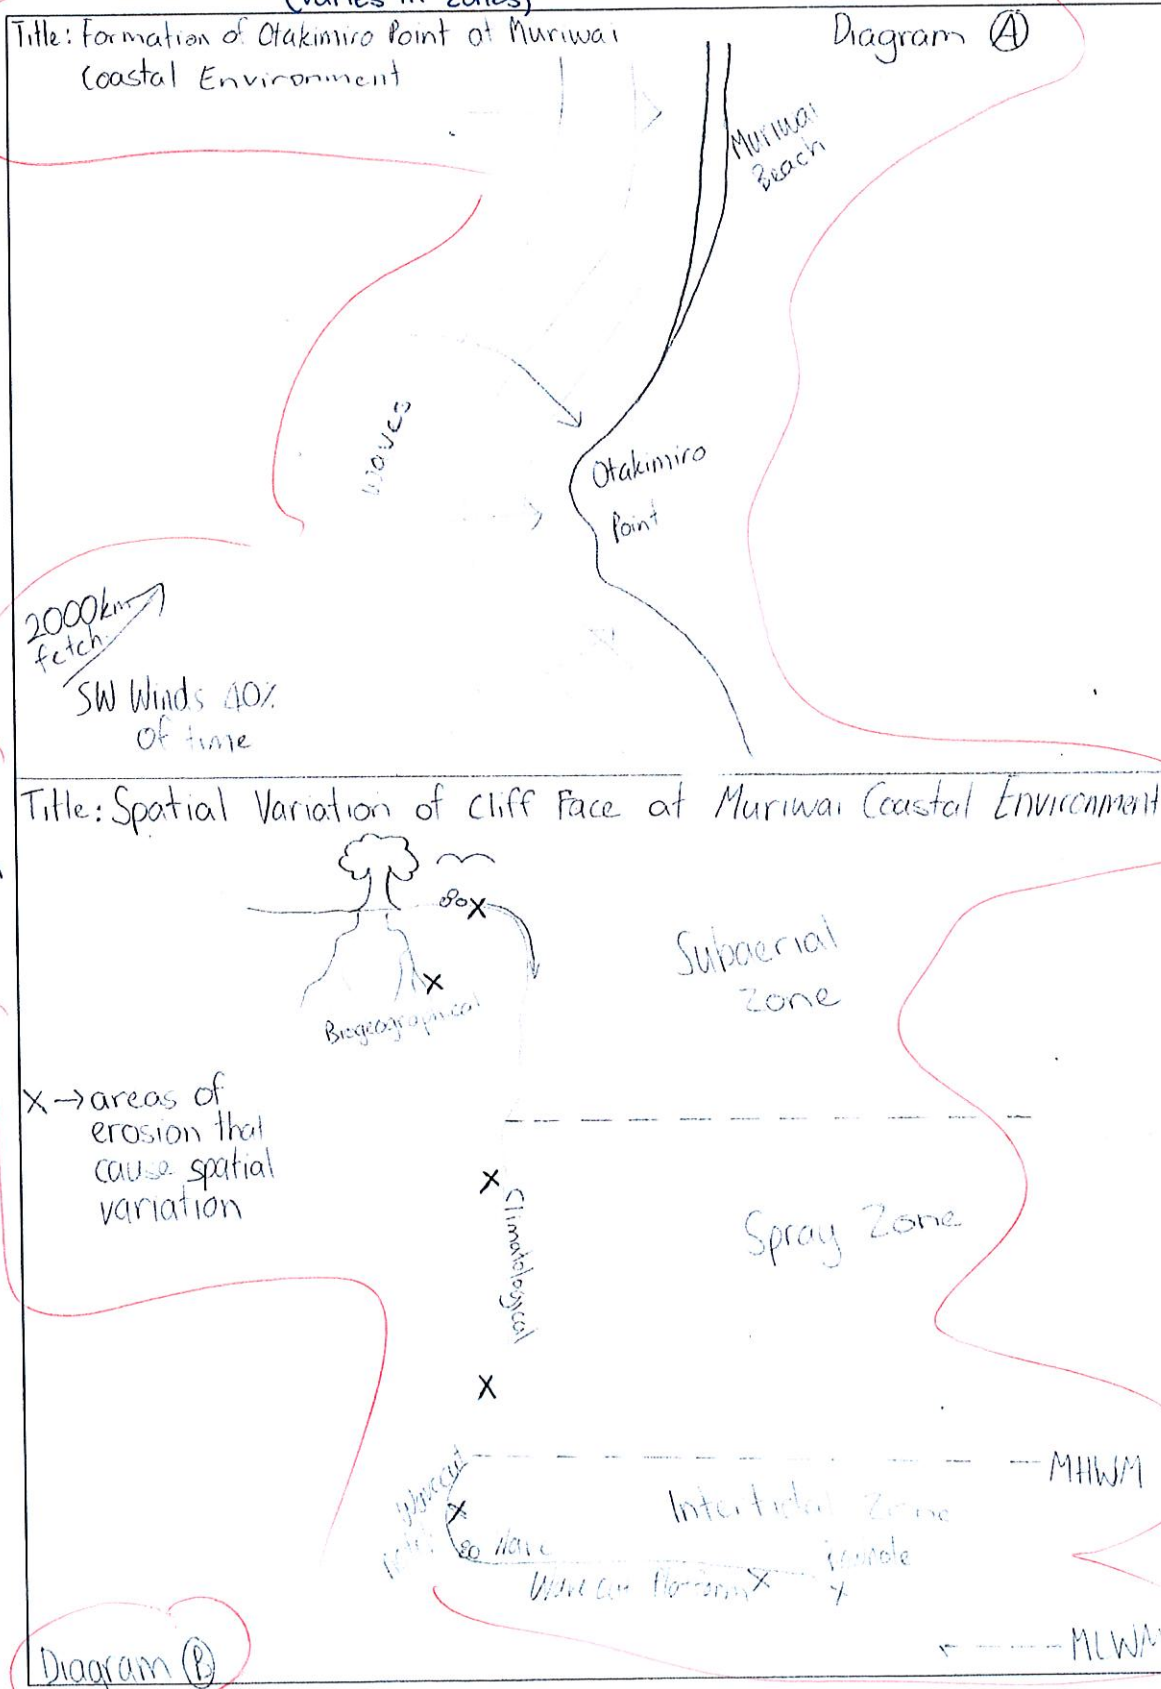 (varies in zones)
Title: Formation of Otakimiro Point at Muriwai
Coastal Environment
Diagram (A)
Muriwai
Beach
waves
Otakimiro
Point
2000km
fetch
SW Winds 40%
of time
Title: Spatial Variation of Cliff Face at Muriwai Coastal Environment
Subaerial
Zone
Biogeographical
X → areas of
erosion that
cause spatial
variation
Climatological
Spray Zone
MHWM
Wave cut
Intertidal Zone
Wave Cut Platform
MLWM
Diagram (B)